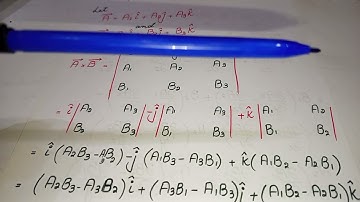 Let
A⃗ = A₁î + A₂ĵ + A₃k̂
and
B₂ĵ + B₃k̂
A⃗ × B⃗ = | A₁ A₂ A₃ |
| B₁ B₂ B₃ |
= î | A₂ A₃ | - ĵ | A₁ A₃ | + k̂ | A₁ A₂ |
| B₂ B₃ | | B₁ B₃ | | B₁ B₂ |
= î (A₂B₃ - A₃B₂) - ĵ (A₁B₃ - A₃B₁) + k̂ (A₁B₂ - A₂B₁)
= (A₂B₃ - A₃B₂) î + (A₃B₁ - A₁B₃) ĵ + (A₁B₂ - A₂B₁) k̂